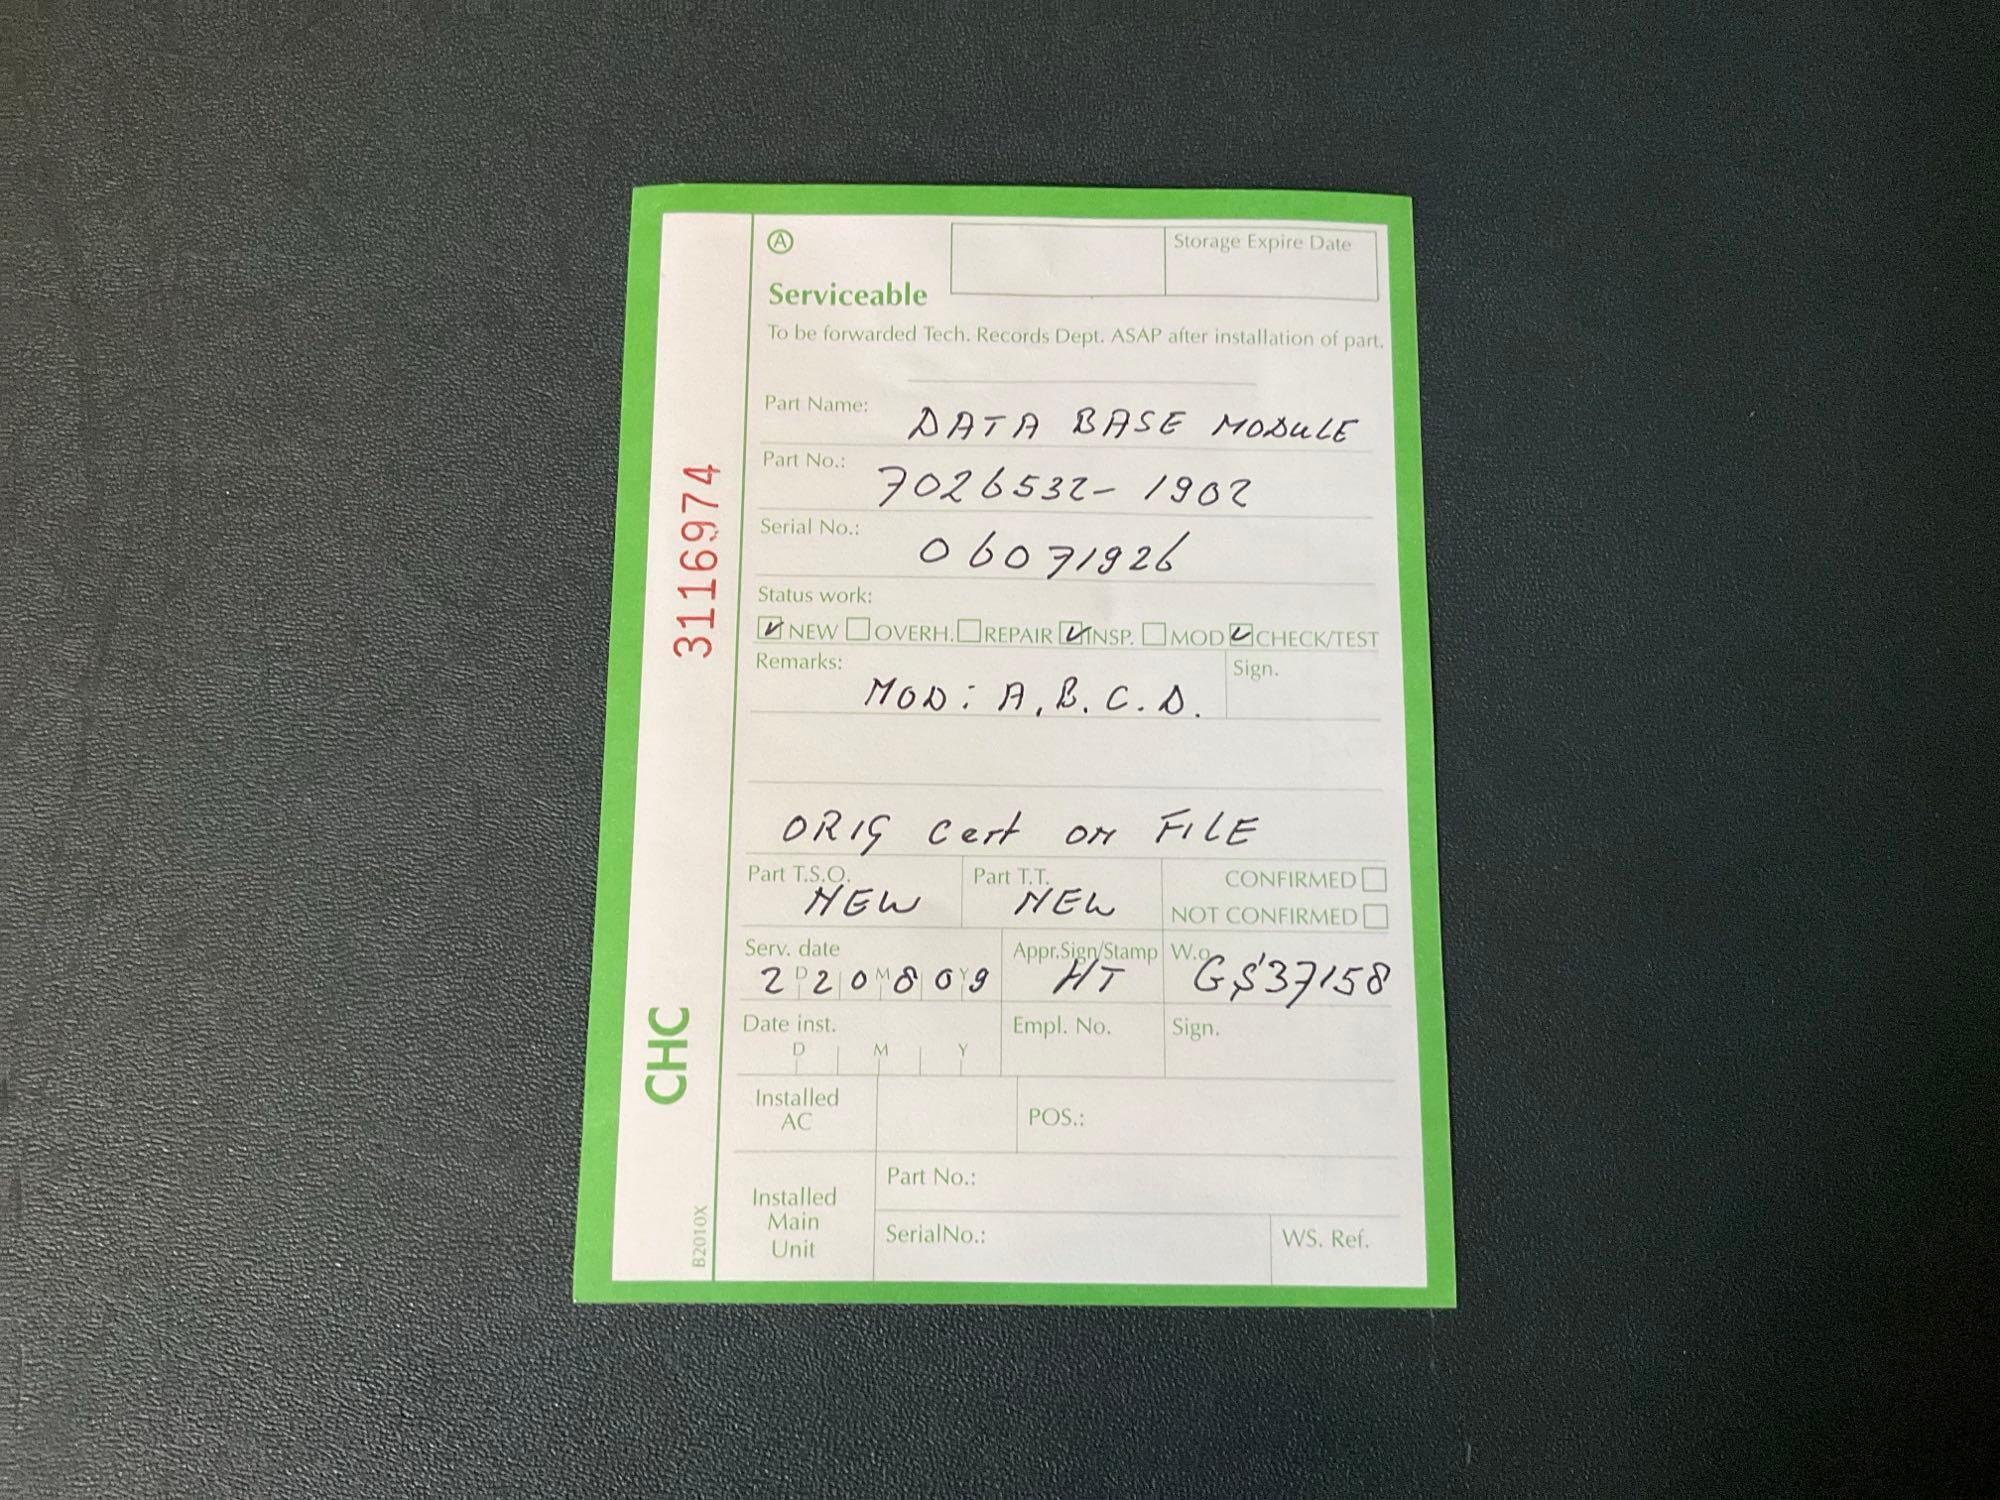 A
Storage Expire Date
Serviceable
To be forwarded Tech. Records Dept. ASAP after installation of part.
Part Name: DATA BASE MODULE
Part No.: 7026532-1902
Serial No.: 06071926
Status work:
NEW OVERH. REPAIR INSP. MOD CHECK/TEST
Remarks: MOD: A.B.C.D. Sign.
ORIG Cert ON FILE
Part T.S.O. NEW Part T.T. NEW CONFIRMED
NOT CONFIRMED
Serv. date Appr.Sign/Stamp W.o.
D M Y
220809 HT GS37158
Date inst. Empl. No. Sign.
D M Y
Installed
AC
POS.:
Installed
Main
Unit
Part No.:
SerialNo.: WS. Ref.
3116974
CHC
B2010X